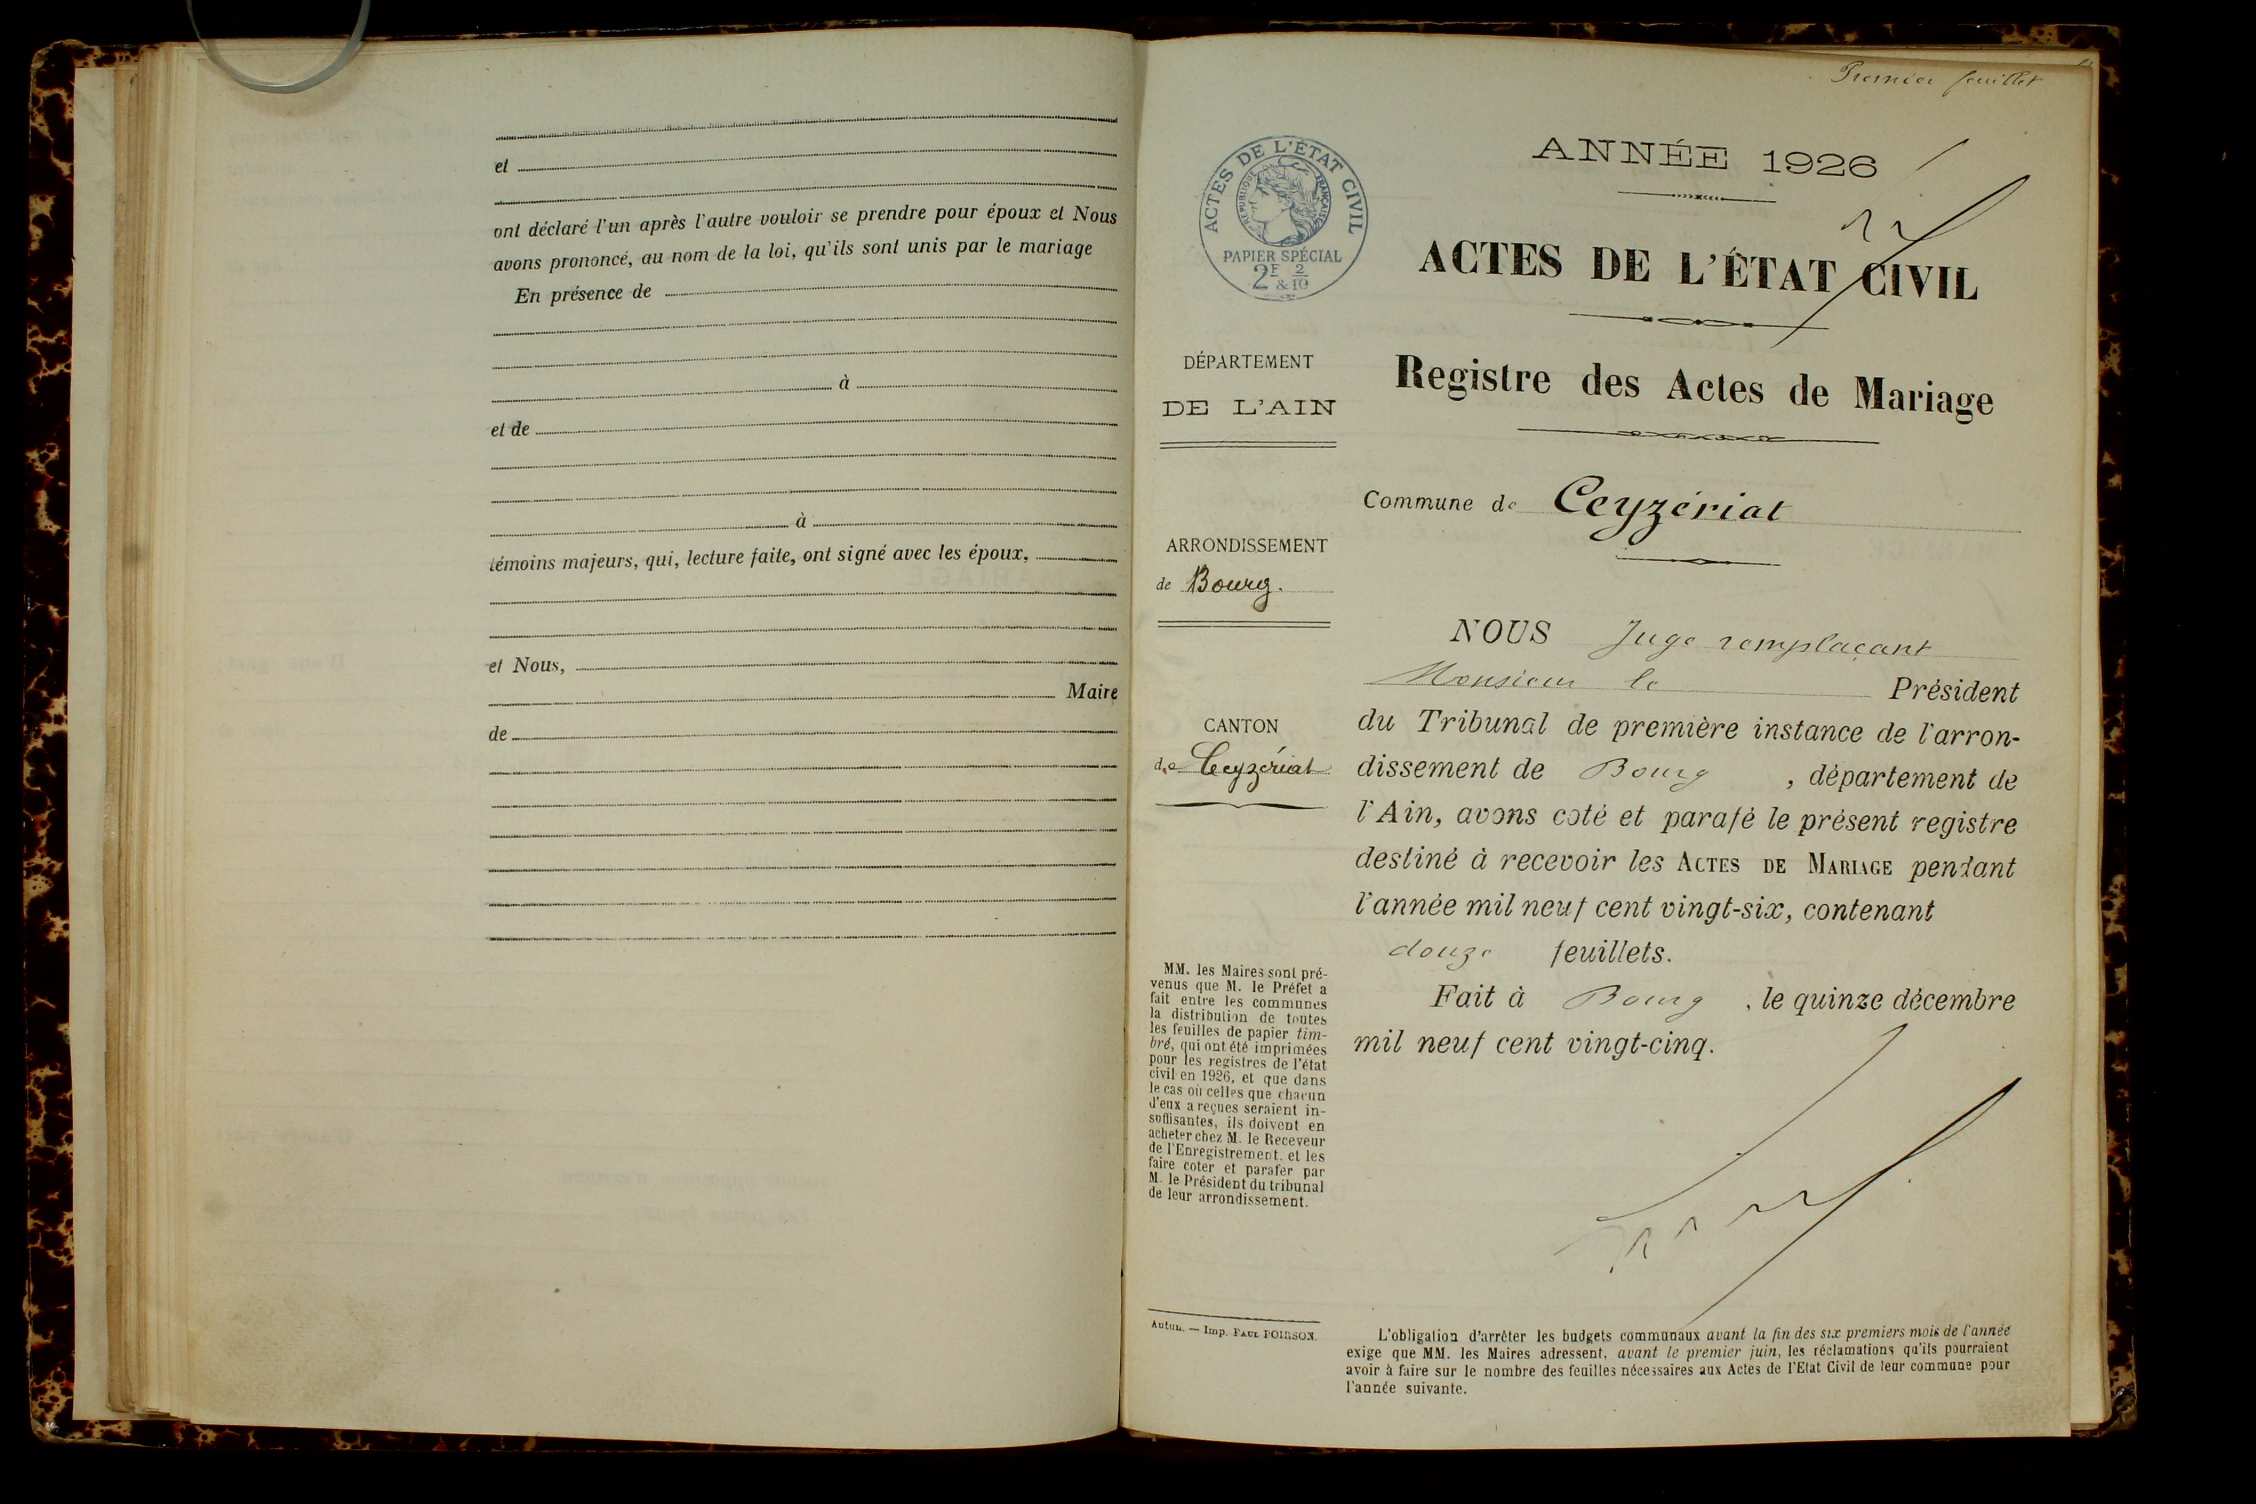 et
ont déclaré l'un après l'autre vouloir se prendre pour époux et Nous
avons prononcé, au nom de la loi, qu'ils sont unis par le mariage
En présence de
à
et de
à
témoins majeurs, qui, lecture faite, ont signé avec les époux,
et Nous,
Maire
de
Premier feuillet
ANNÉE 1926
ACTES DE L'ÉTAT CIVIL
RÉPUBLIQUE FRANÇAISE
PAPIER SPÉCIAL
2F 2
& 10
ACTES DE L'ÉTAT CIVIL
Registre des Actes de Mariage
DÉPARTEMENT
DE L'AIN
Commune de Ceyzériat
ARRONDISSEMENT
de Bourg.
CANTON
de Ceyzériat
NOUS Juge remplaçant
Monsieur le Président
du Tribunal de première instance de l'arron-
dissement de Bourg, département de
l'Ain, avons coté et parafé le présent registre
destiné à recevoir les ACTES DE MARIAGE pendant
l'année mil neuf cent vingt-six, contenant
douze feuillets.
Fait à Bourg, le quinze décembre
mil neuf cent vingt-cinq.
MM. les Maires sont pré-
venus que M. le Préfet a
fait entre les communes
la distribution de toutes
les feuilles de papier tim-
bré, qui ont été imprimées
pour les registres de l'état
civil en 1926, et que dans
le cas où celles que chacun
d'eux a reçues seraient in-
suffisantes, ils doivent en
acheter chez M. le Receveur
de l'Enregistrement, et les
faire coter et parafer par
M. le Président du tribunal
de leur arrondissement.
Autun. — Imp. PAUL POIRSON.
L'obligation d'arrêter les budgets communaux avant la fin des six premiers mois de l'année
exige que MM. les Maires adressent, avant le premier juin, les réclamations qu'ils pourraient
avoir à faire sur le nombre des feuilles nécessaires aux Actes de l'Etat Civil de leur commune pour
l'année suivante.